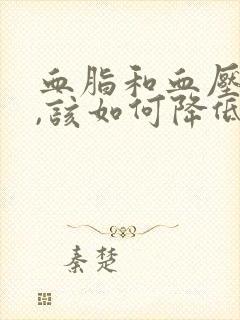 血脂和血壓
,該如何降低
秦楚